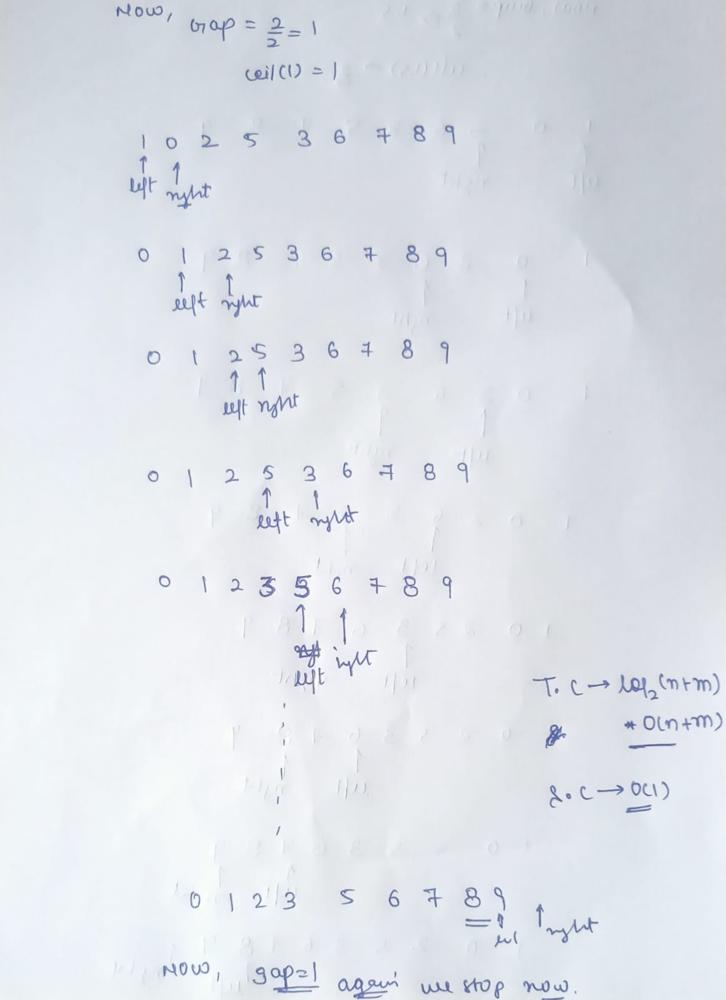 Now, Gap = 2/2 = 1
ceil(1) = 1
1 0 2 5 3 6 7 8 9
↑ ↑
left right
0 1 2 5 3 6 7 8 9
↑ ↑
left right
0 1 2 5 3 6 7 8 9
↑ ↑
left right
0 1 2 5 3 6 7 8 9
↑ ↑
left right
0 1 2 3 5 6 7 8 9
↑ ↑
right
left
T.C → log₂(n+m)
* O(n+m)
S.C → O(1)
0 1 2 3 5 6 7 8 9
↑ ↑
right
Now, gap=1 again we stop now.